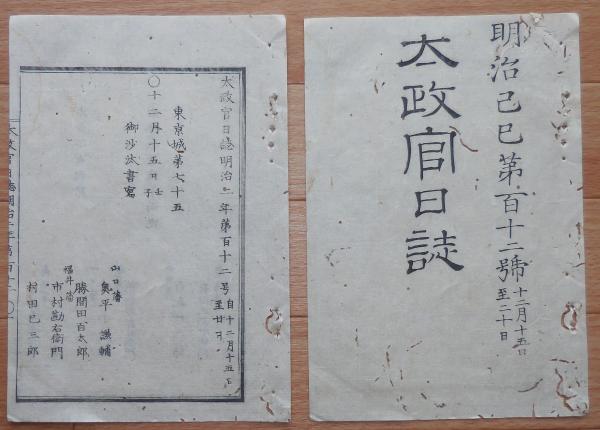 明治己巳第百十二號 十二月十五日 至二十日
太政官日誌
太政官日誌明治二年第百十二号 自十二月十五日 至廿日
東京城第七十五
〇十二月十五日壬子
御沙汰書寫
山口藩
奥平謙輔
勝間田百太郎
福井藩
市村勘右衛門
村田巳三郎